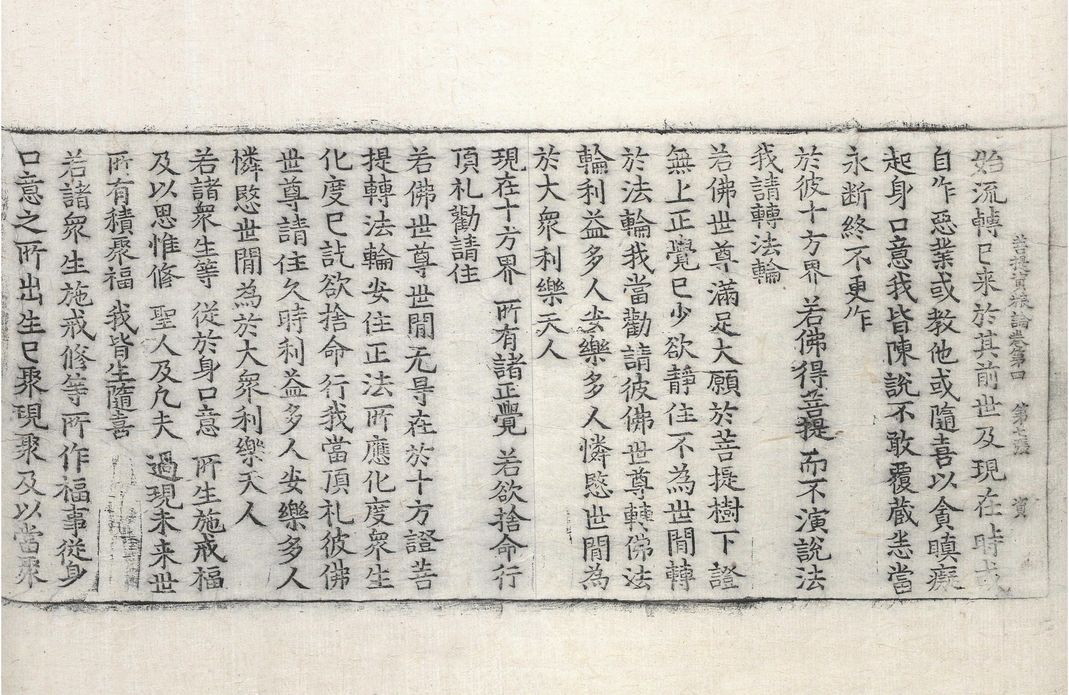 菩提資粮論卷第四 第十張 資
始流轉已来於其前世及現在時或
自作惡業或教他或隨喜以貪瞋癡
起身口意我皆陳說不敢覆蔵悉當
永断終不更作
於彼十方界 若佛得菩提 而不演說法
我請轉法輪
若佛世尊滿足大願於菩提樹下證
無上正覺已少欲静住不為世間轉
於法輪我當勸請彼佛世尊轉佛法
輪利益多人安樂多人憐愍世間為
於大衆利樂天人
現在十方界 所有諸正覺 若欲捨命行
頂礼勸請住
若佛世尊世間无㝵在於十方證菩
提轉法輪安住正法所應化度衆生
化度已訖欲捨命行我當頂礼彼佛
世尊請住久時利益多人安樂多人
憐愍世間為於大衆利樂天人
若諸衆生等 從於身口意 所生施戒福
及以思惟修 聖人及凡夫 過現未来世
所有積聚福 我皆生隨喜
若諸衆生施戒修等所作福事從身
口意之所出生已聚現聚及以當聚